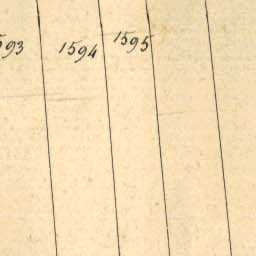 593 1594 1595